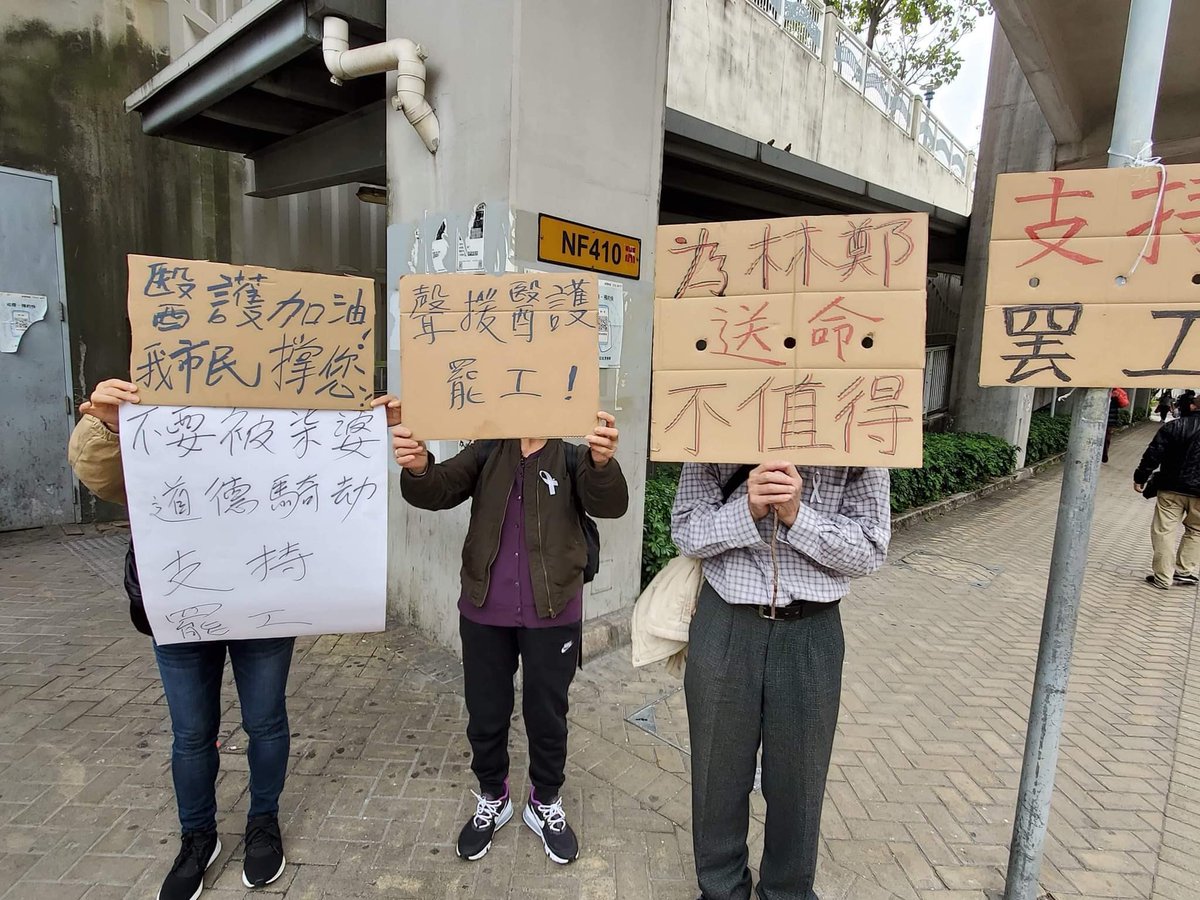 醫護加油!
我市民撐您!
不要被柒婆
道德騎劫
支持
罷工
聲援醫護
罷工!
NF410
為林鄭
送命
不值得
支持
罷工